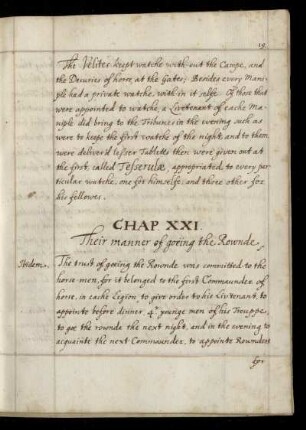 19
The Velites keept watche with out the Campe, and
the Decuries of horse, at the Gates; Besides every Mani-
ple had a private watche, with in it selfe. Of those that
were appointed to watche, a Lievtenant of eache Ma-
niple did bring to the Tribunes in the evening such as
were to keepe the first watche of the night, and to them
were delivered lesser Tabletts then were given out at
the first, called Tesserulæ, appropriated to every per
ticular watche, one for himselfe, and three other for
his fellowes.
CHAP XXI.
Their manner of goeing the Rownde.
Ibidem.
The trust of goeing the Rownde was committed to the
horse-men, for it belonged to the first Commaunder of
horse, in eache Legion, to give order to his Lievtenant, to
appointe before dinner, 4. younge men of his Trouppe,
to goe the rownde the next night, and in the evening to
acquainte the next Commaunder, to appointe Rownders
for